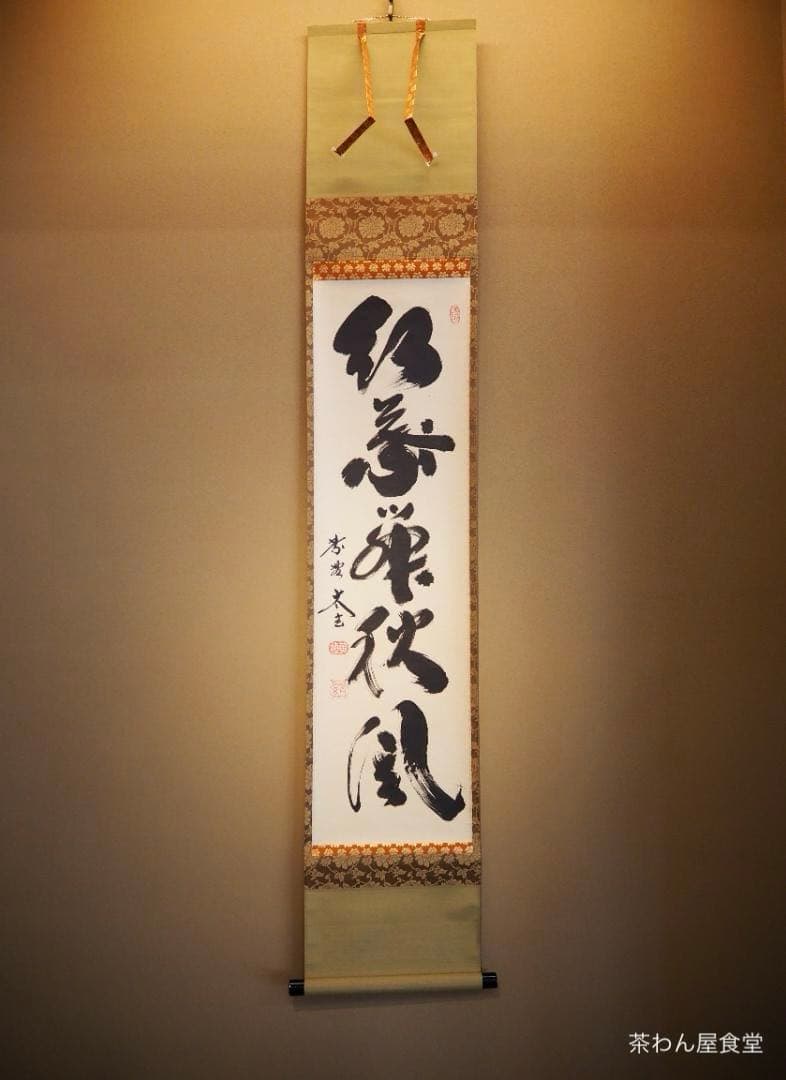 紅葉舞秋風
太玄
茶わん屋食堂